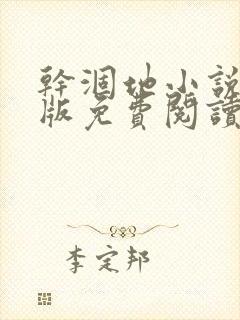 幹涸地小說
版免費閱讀
李定邦